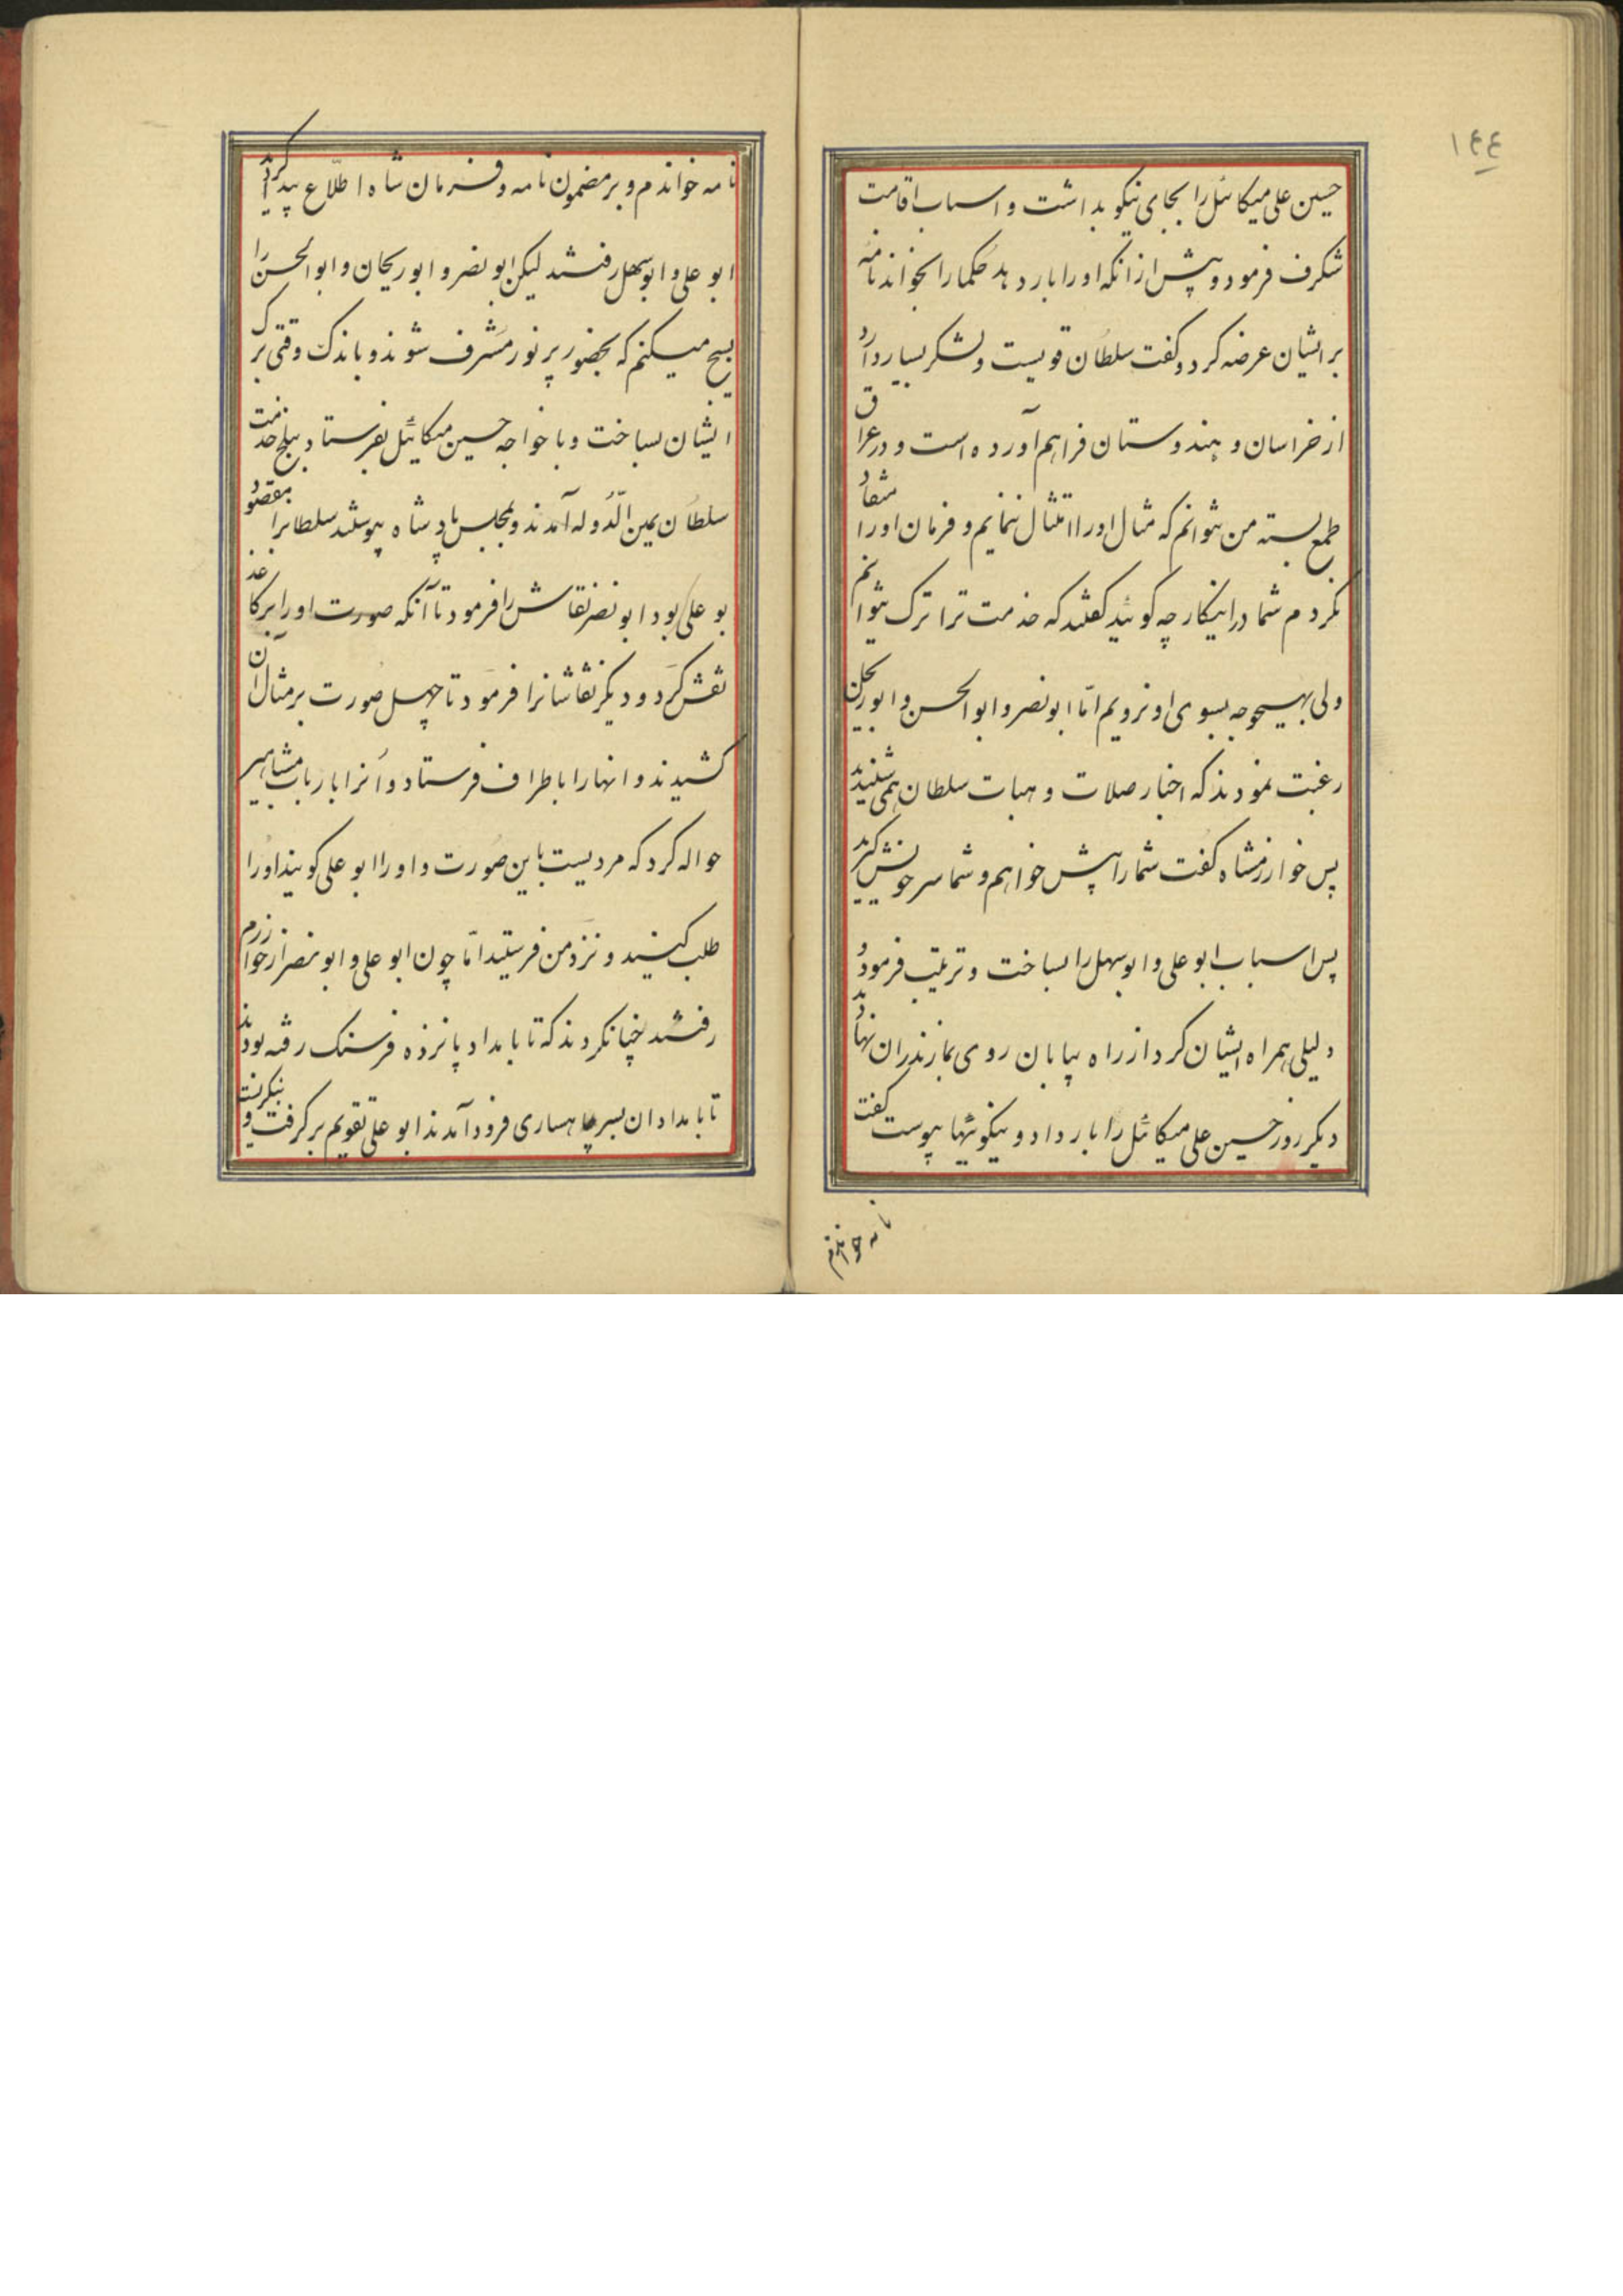 ١٤٤
حسین علی میکائیل را بجای نیکو بداشت و اسباب اقامت
شکرف فرمود و پیش از انکه او را بار دهد حکما را بخواند نامه
بر ایشان عرضه کرد و کفت سلطان قویست و لشکر بسیار دارد
از خراسان و هندوستان فراهم آورده است و در عراق
طمع بسته من نتوانم که مثال او را امتثال ننمایم و فرمان او را منقاد
نکردم شما در اینکار چه کوئید کفتند که خدمت ترا ترک نتوانیم
ولی بهیچوجه بسوی او نرویم امّا ابو نصر و ابو الحسن و ابو ریحان
رغبت نمودند که اخبار صلات و هبات سلطان همی شنیدند
پس خوارزمشاه کفت شما را پیش خواهم و شما سر خویش کیرید
پس اسباب ابو علی و ابو سهل را بساخت و ترتیب فرمود و
دلیلی همراه ایشان کرد از راه بیابان روی بمازندران نهادند
دیکر روز حسین علی میکائیل را بار داد و نیکوئیها پیوست کفت
نامه خواندم
نامه خواندم و بر مضمون نامه و فرمان شاه اطلّاع پیدا کردم
ابو علی و ابو سهل رفتند لیکن ابو نصر و ابو ریحان و ابو الحسن را
بسیج میکنم که بحضور پر نور مشرف شوند و باندک وقتی برک
ایشان بساخت و با خواجه حسین میکائیل بفرستاد ببلخ خدمت
سلطان یمین الّدوله آمدند و بمجلس پادشاه پیوستند سلطانرا مقصود
بو علی بود ابو نصر نقاش را فرمود تا آنکه صورت او را بر کاغذ
نقش کرد و دیکر نقاشانرا فرمود تا چهل صورت بر مثال آن
کشیدند و انها را باطراف فرستاد و آنرا بارباب مشاهیر
حواله کرد که مردیست باین صورت و او را ابو علی کویند او را
طلب کنید و نزد من فرستید امّا چون ابو علی و ابو نصر از خوارزم
رفتند چنان کردند که تا بامداد پانزده فرسنک رفته بودند
تا بامدادان بسر چاهساری فرود آمدند ابو علی تقویم بر کرفت و بنکریست